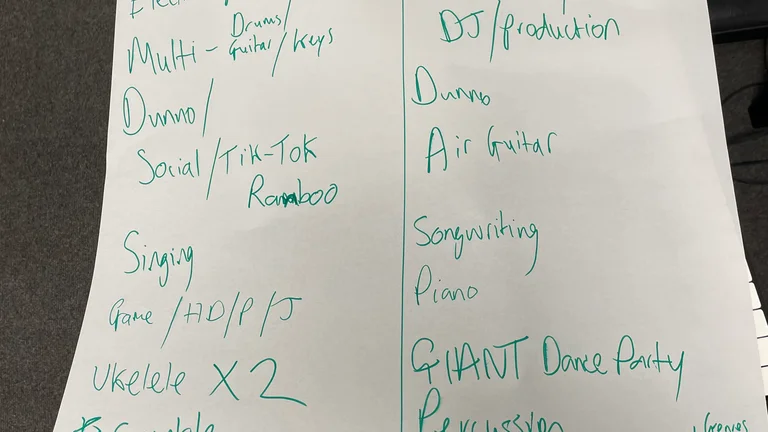 Multi - Drums/
Guitar / Keys
Dunno/
Social/Tik-Tok
Ramboo
Singing
Game /HD/P/J
Ukelele X2
DJ/production
Dunno
Air Guitar
Songwriting
Piano
GIANT Dance Party
Percussion
Genres